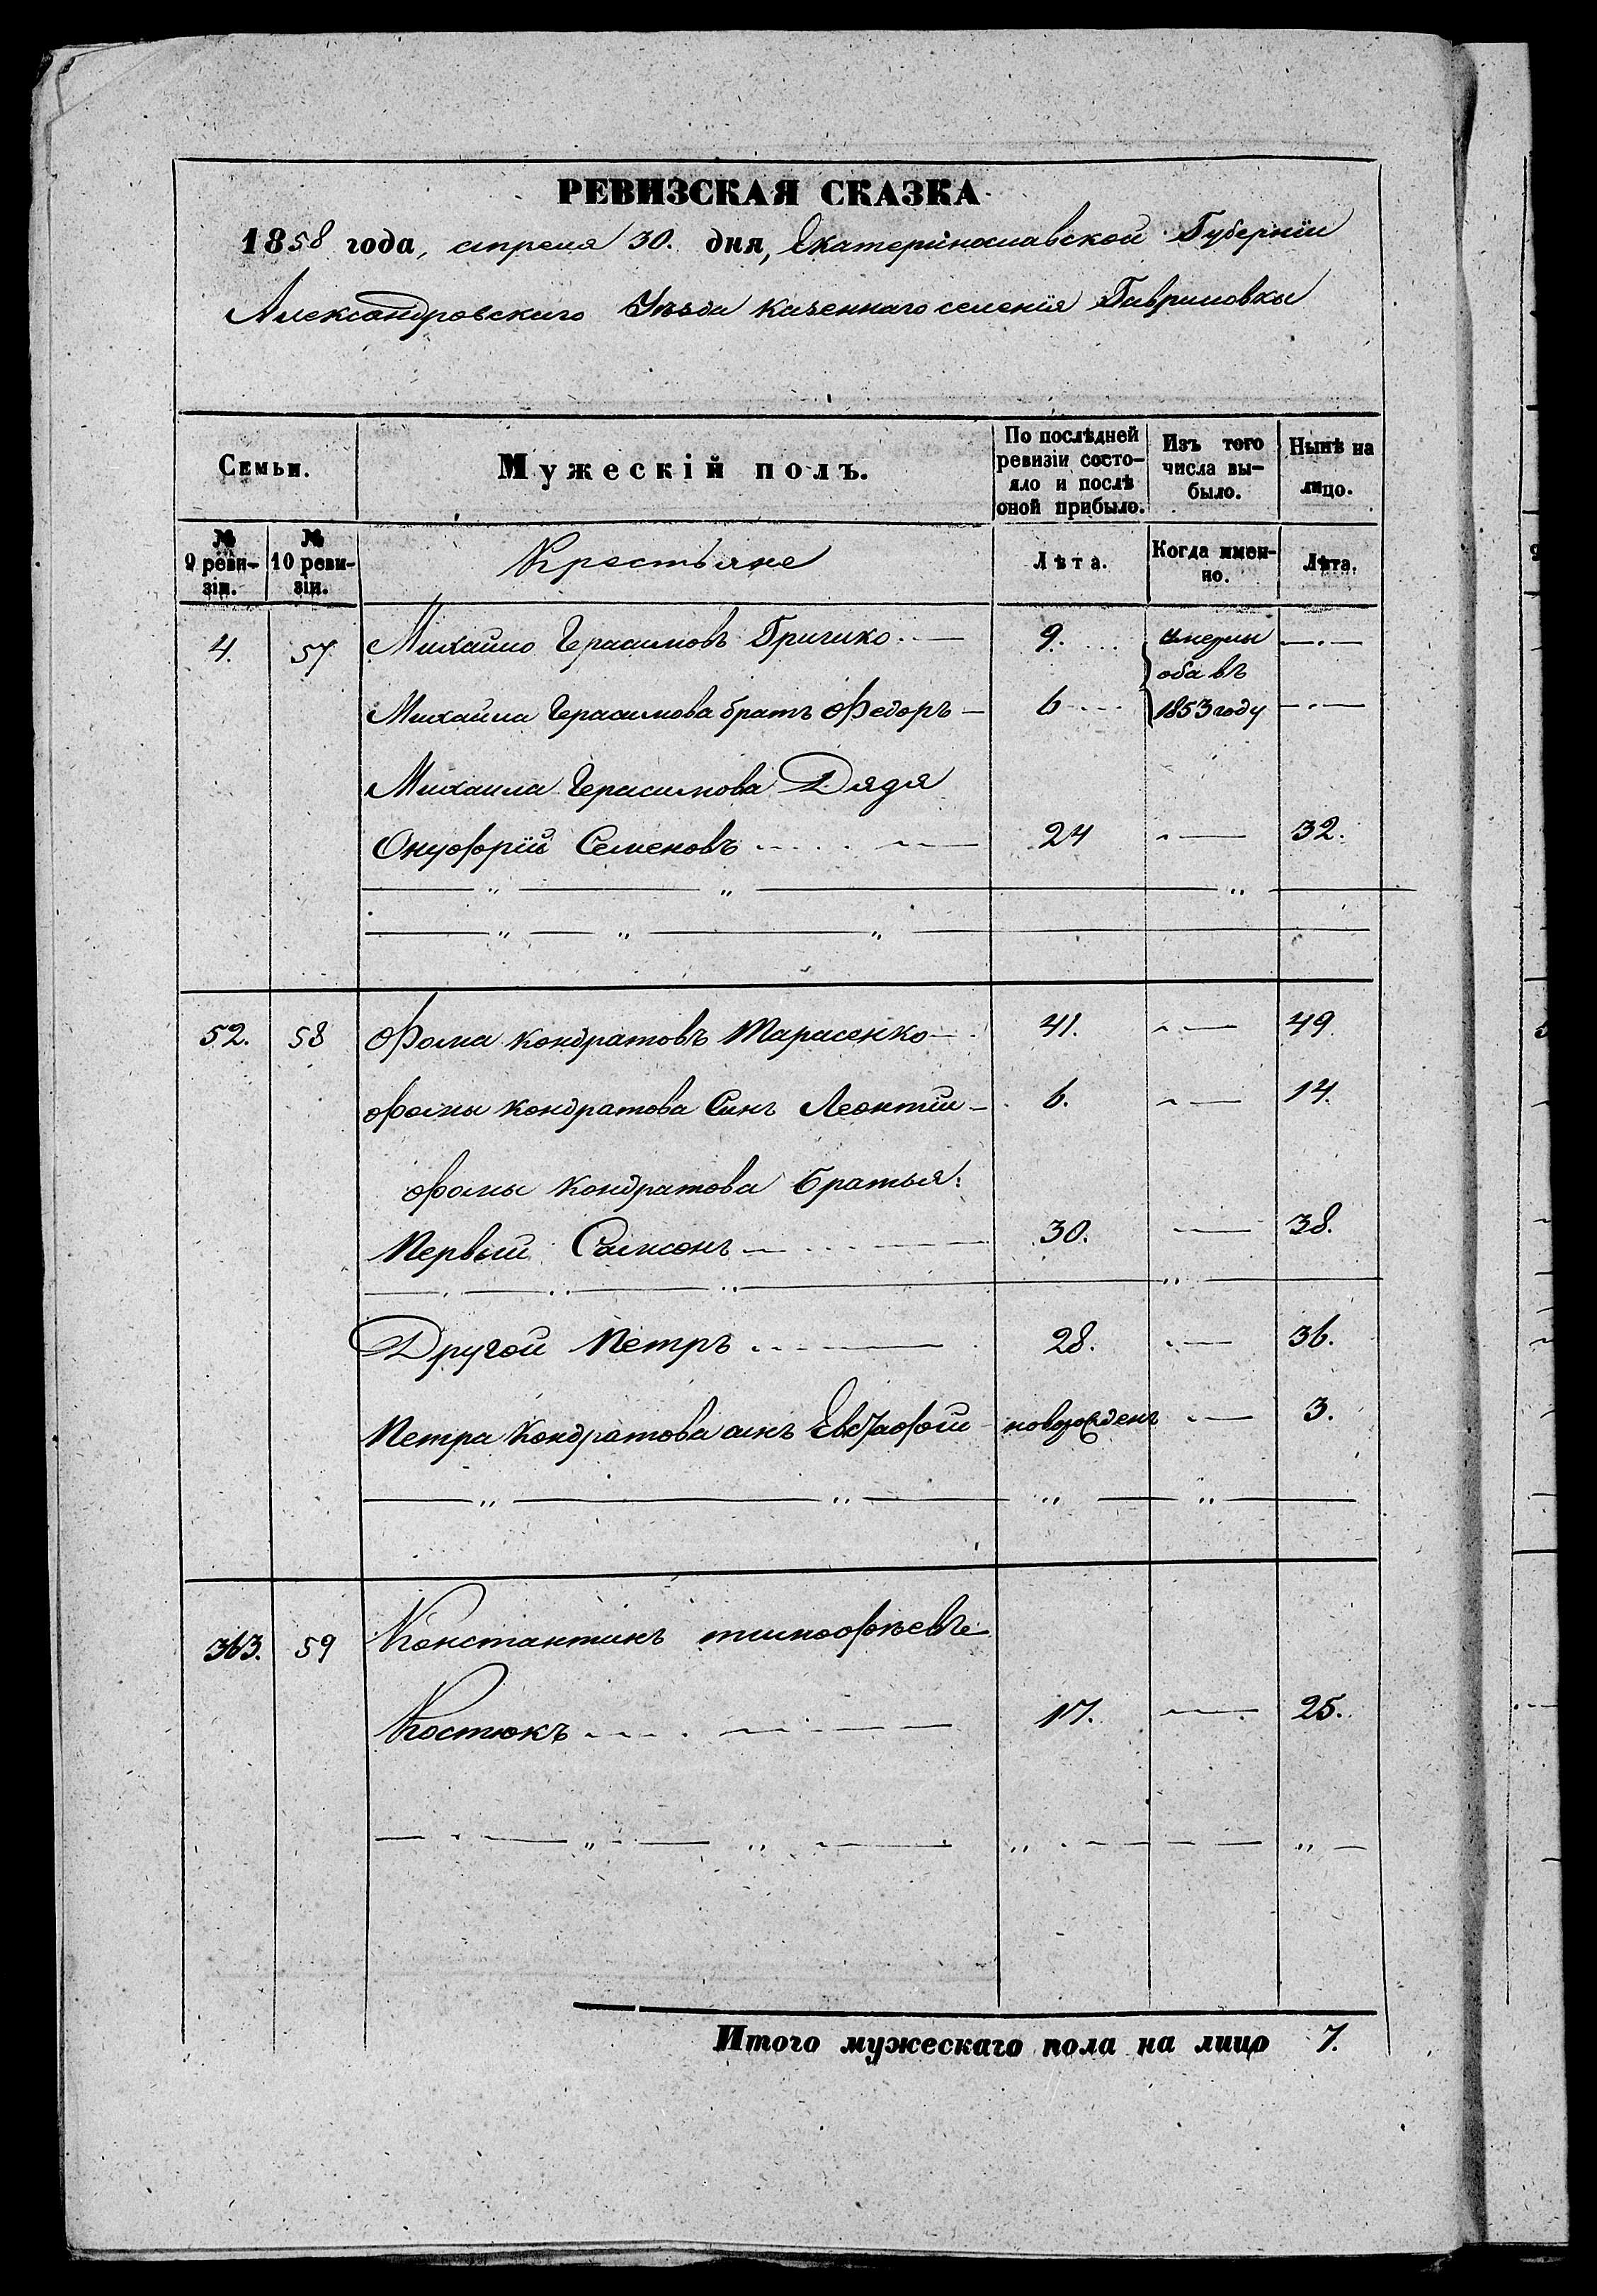 РЕВИЗСКАЯ СКАЗКА
1858 года, апреля 30. дня, Екатеринославской Губерніи
Александровскаго Уѣзда казеннаго селенія Гавриловки
Семьи.
Мужескій полъ.
По послѣдней ревизіи состояло и послѣ оной прибыло.
Изъ того числа выбыло.
Нынѣ на лицо.
№ 9 ревизіи.
№ 10 ревизіи.
Крестьяне
Лѣта.
Когда именно.
Лѣта.
4. 57 Михайло Герасимовъ Гричико 9. умерлы
оба въ
Михайла Герасимова братъ Федоръ 6 1853 году
Михаила Герасимова Дядя
Онуфрій Семеновъ 24 32.
52. 58 Фома Кондратовъ Тарасенко 41. 49
Фомы Кондратова Синъ Леонтій 6. 14.
Фомы Кондратова Братья:
Первый Самсонъ 30. 38.
Другой Петръ 28. 36.
Петра Кондратова синъ Евстафій новорожденъ 3.
363. 59 Константинъ тимофѣевъ
Костюкъ 17. 25.
Итого мужескаго пола на лицо 7.